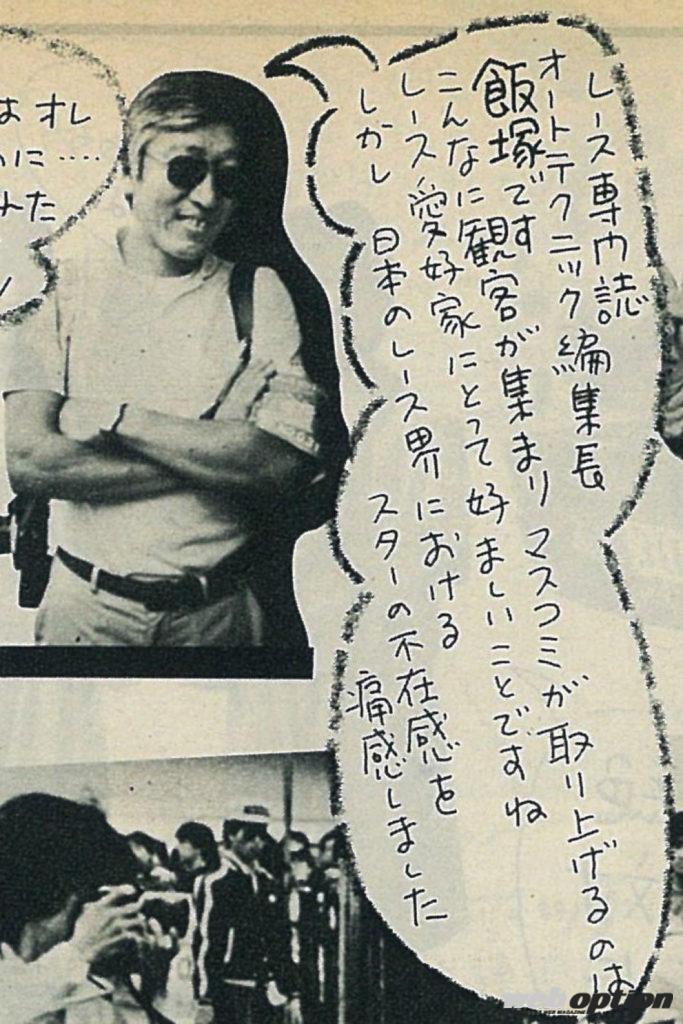 レース専門誌
オートテクニック編集長
飯塚です
こんなに観客が集まり マスコミが取り上げるのは
レース愛好家にとって好ましいことですね
しかし 日本のレース界における
スターの不在感を
痛感しました
はオレ
のに‥‥
みた
web option
WEB MAGAZINE